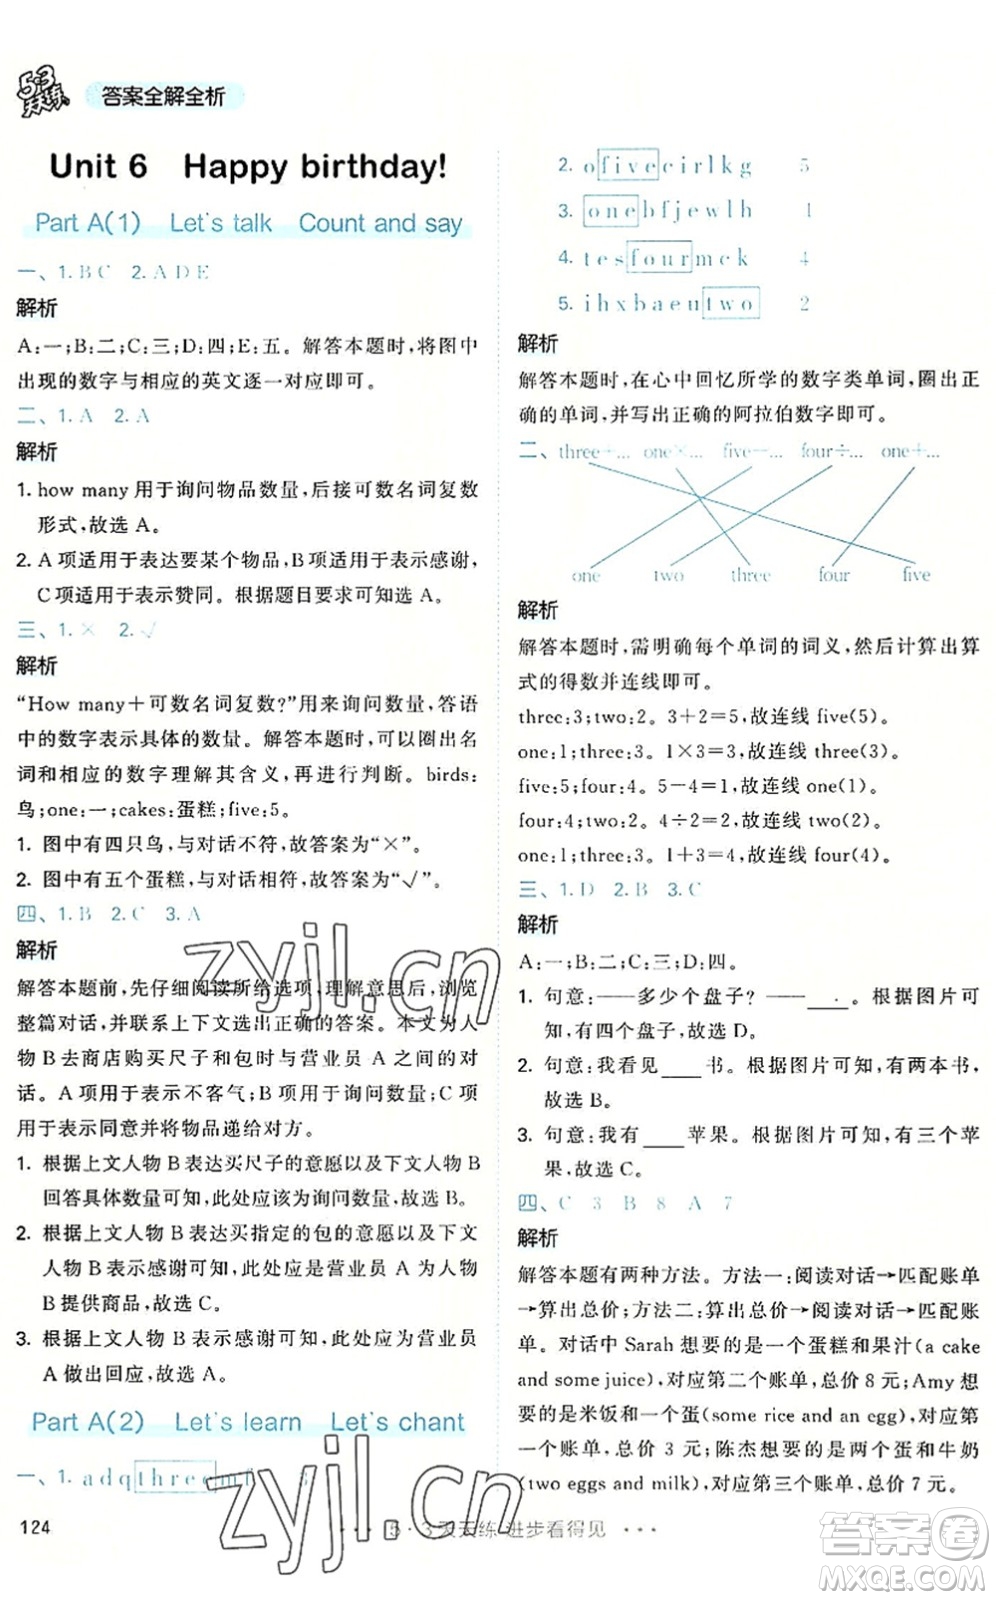 5·3
天天练
答案全解全析
Unit 6 Happy birthday!
Part A(1) Let's talk Count and say
一、1. B C 2. A D E
解析
A:一;B:二;C:三;D:四;E:五。解答本题时,将图中
出现的数字与相应的英文逐一对应即可。
二、1. A 2. A
解析
1. how many 用于询问物品数量,后接可数名词复数
形式,故选 A。
2. A 项适用于表达要某个物品,B 项适用于表示感谢,
C 项适用于表示赞同。根据题目要求可知选 A。
三、1. × 2. √
解析
“How many+可数名词复数?”用来询问数量,答语
中的数字表示具体的数量。解答本题时,可以圈出名
词和相应的数字理解其含义,再进行判断。birds:
鸟;one:一;cakes:蛋糕;five:5。
1. 图中有四只鸟,与对话不符,故答案为“×”。
2. 图中有五个蛋糕,与对话相符,故答案为“√”。
四、1. B 2. C 3. A
解析
解答本题前,先仔细阅读所给选项,理解意思后,浏览
整篇对话,并联系上下文选出正确的答案。本文为人
物 B 去商店购买尺子和包时与营业员 A 之间的对
话。A 项用于表示不客气;B 项用于询问数量;C 项
用于表示同意并将物品递给对方。
1. 根据上文人物 B 表达买尺子的意愿以及下文人物 B
回答具体数量可知,此处应该为询问数量,故选 B。
2. 根据上文人物 B 表达买指定的包的意愿以及下文
人物 B 表示感谢可知,此处应是营业员 A 向人物
B 提供商品,故选 C。
3. 根据上文人物 B 表示感谢可知,此处应为营业员
A 做出回应,故选 A。
Part A(2) Let's learn Let's chant
一、1. a d q t h r e e m f 3
2. o f i v e c i r l k g 5
3. o n e b f j e w l h 1
4. t e s f o u r m c k 4
5. i h x b a e u t w o 2
解析
解答本题时,在心中回忆所学的数字类单词,圈出正
确的单词,并写出正确的阿拉伯数字即可。
二、three+… one×… five−… four÷… one+…
one two three four five
解析
解答本题时,需明确每个单词的词义,然后计算出算
式的得数并连线即可。
three:3;two:2。3+2=5,故连线 five(5)。
one:1;three:3。1×3=3,故连线 three(3)。
five:5;four:4。5−4=1,故连线 one(1)。
four:4;two:2。4÷2=2,故连线 two(2)。
one:1;three:3。1+3=4,故连线 four(4)。
三、1. D 2. B 3. C
解析
A:一;B:二;C:三;D:四。
1. 句意:——多少个盘子?——____。根据图片可
知,有四个盘子,故选 D。
2. 句意:我看见____书。根据图片可知,有两本书。
故选 B。
3. 句意:我有____苹果。根据图片可知,有三个苹
果,故选 C。
四、C 3 B 8 A 7
解析
解答本题有两种方法。方法一:阅读对话→匹配账单
→算出总价;方法二:算出总价→阅读对话→匹配账
单。对话中 Sarah 想要的是一个蛋糕和果汁(a cake
and some juice),对应第二个账单,总价 8 元;Amy 想
要的是米饭和一个蛋(some rice and an egg),对应第
一个账单,总价 3 元;陈杰想要的是两个蛋和牛奶
(two eggs and milk),对应第三个账单,总价 7 元。
124
5·3天天练·进步看得见
zyjl.cn
zyjl.cn
答案圈
MXQE.COM